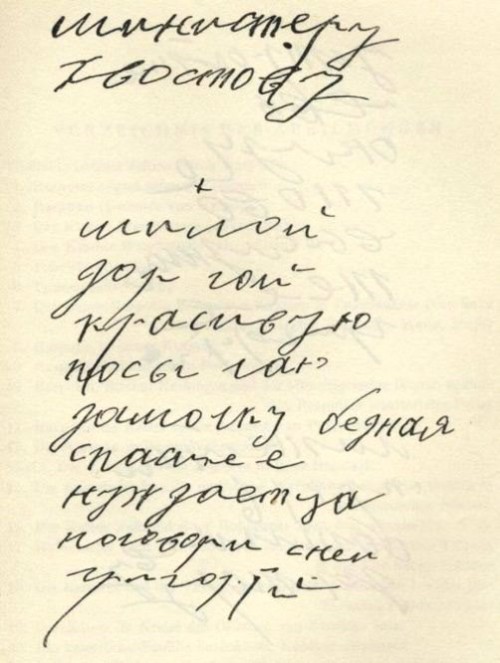 министеру
хвостову
+
милой
дор гой
красивую
посы лаю
дамочку бедная
спаси ее
нуждаетца
поговори с ней
григорий